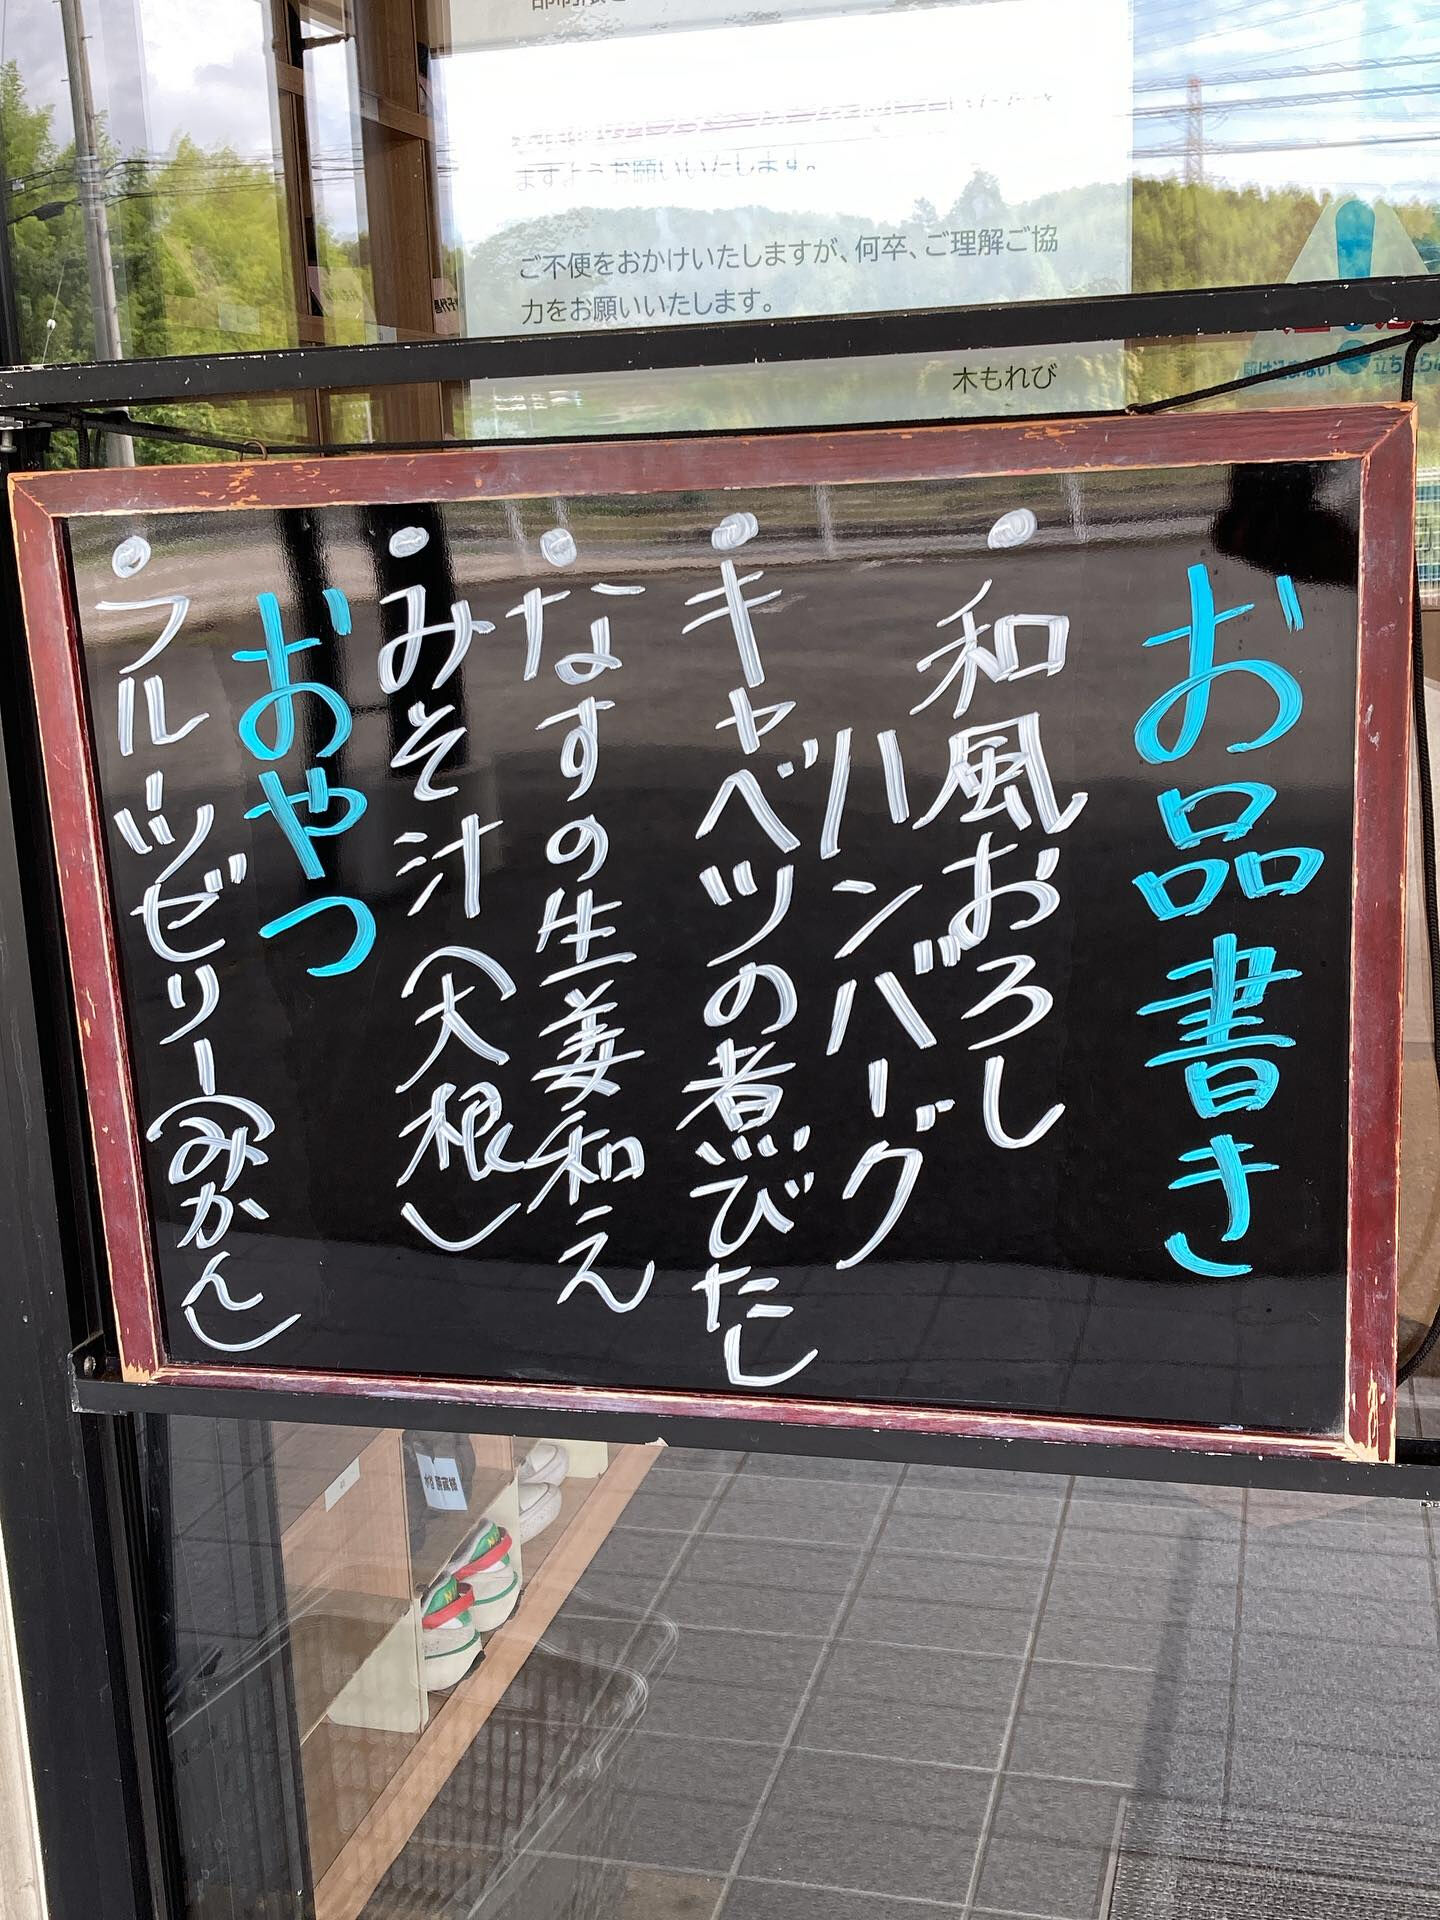 ますようお願いいたします。
ご不便をおかけいたしますが、何卒、ご理解ご協
力をお願いいたします。
木もれび
駆け込まない
お品書き
和風おろし
ハンバーグ
キャベツの煮びたし
なすの生姜和え
みそ汁(大根)
おやつ
フルーツゼリー(みかん)